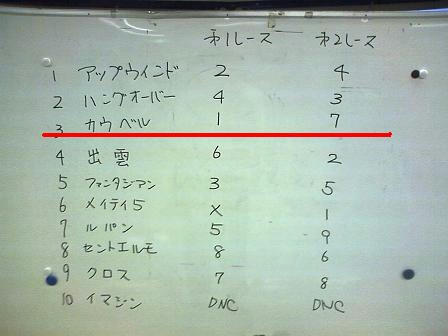 オ1レース オ2レース
1 アップウィンド 2 4
2 ハングオーバー 4 3
3 カウベル 1 7
4 出雲 6 2
5 ファンタジアン 3 5
6 メイティ5 X 1
7 ルパン 5 9
8 セントエルモ 8 6
9 クロス 7 8
10 イマジン DNC DNC